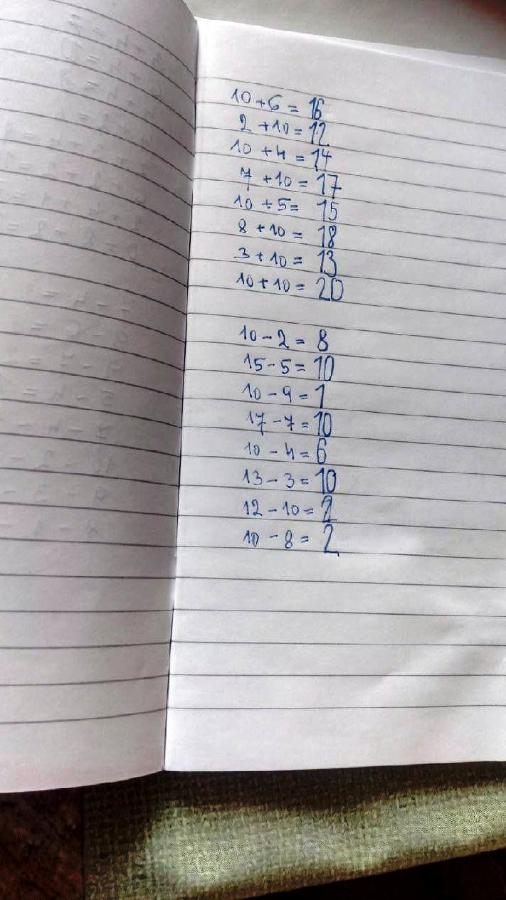 10+6=16
2+10=12
10+4=14
7+10=17
10+5=15
8+10=18
3+10=13
10+10=20
10-2=8
15-5=10
10-9=1
17-7=10
10-4=6
13-3=10
12-10=2
10-8=2